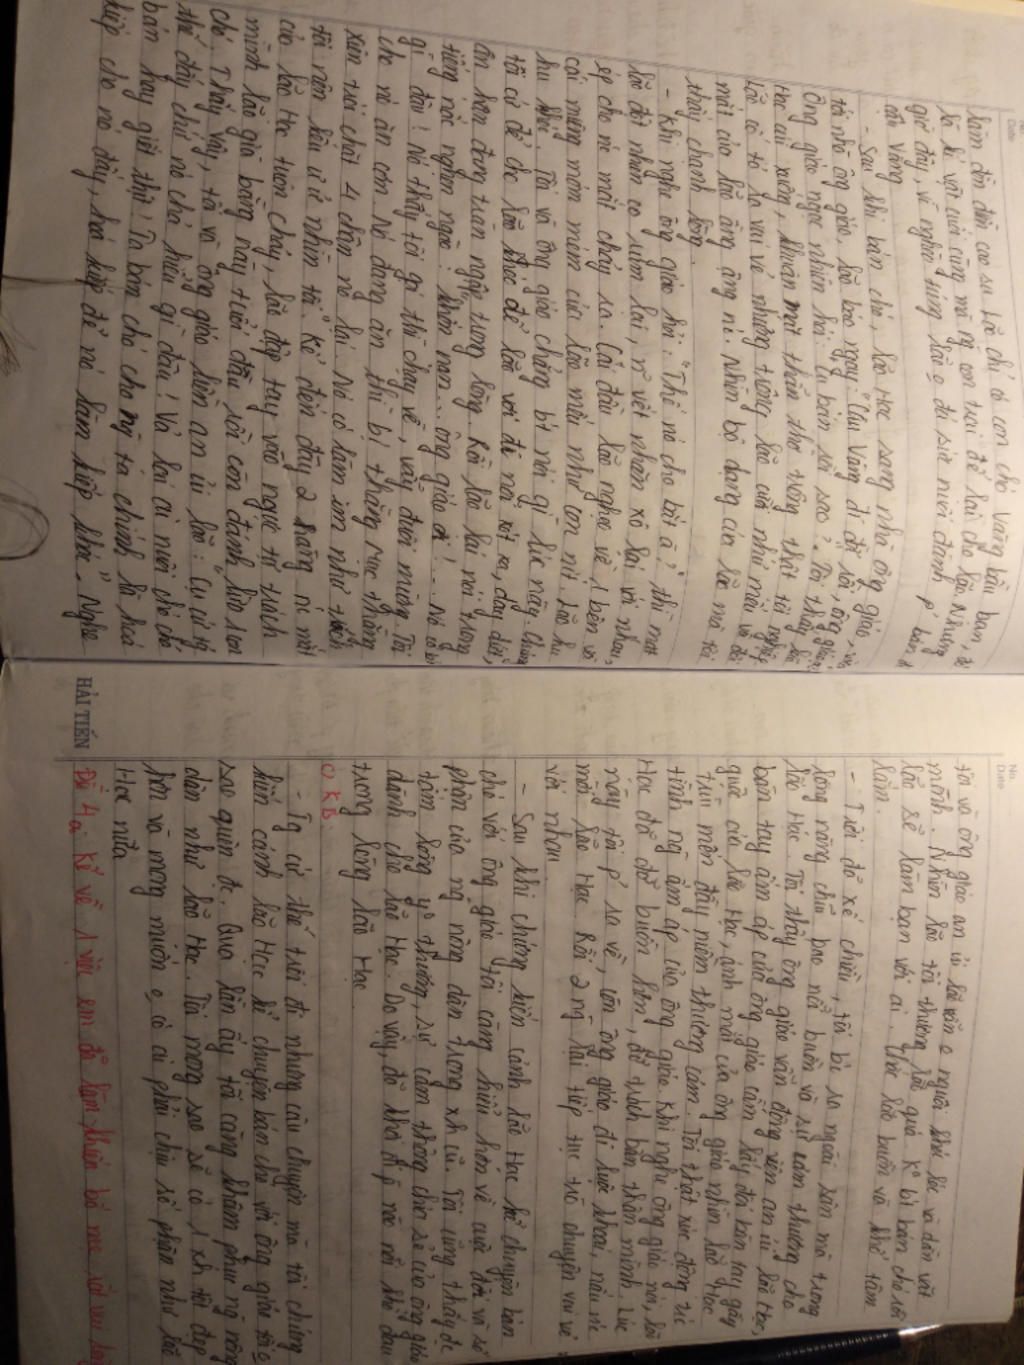 Date
làm đồn điền cao su. Lão chỉ có con chó Vàng bầu bạn, đó
là kỉ vật cuối cùng mà ng con trai để lại cho lão. Nhưng
giờ đây, vì nghèo túng lão o đủ sức nuôi đành p' bán
cậu Vàng.
- Sau khi bán chó, lão Hạc sang nhà ông giáo, vừa
tới nhà ông giáo, lão báo ngay "Cậu Vàng đi đời rồi, ông giáo ạ"
Ông giáo ngạc nhiên hỏi: "Cụ bán rồi sao?". Tôi thấy lão
Hạc cúi xuống, khuôn mặt thẫn thờ trông thật tội nghiệp
Lão cố tỏ ra vui vẻ nhưng trông lão cười như mếu và đôi
mắt của lão ầng ậng nc. Nhìn bộ dạng của lão mà tôi
thấy chạnh lòng.
- Khi nghe ông giáo hỏi: "Thế nó cho bắt à?" thì mặt
lão đột nhiên co rúm lại, n~ vết nhăn xô lại với nhau,
ép cho nc mắt chảy ra. Cái đầu lão ngẹo về 1 bên và
cái miệng móm mém của lão mếu như con nít. Lão hu
hu khóc. Tôi và ông giáo chẳng bt nói gì lúc này. Chúng
tôi cứ để cho lão khóc để lão vơi đi nỗi xót xa, day dứt,
ân hận đang tràn ngập trong lòng. Rồi lão lại nói trong
tiếng nấc nghẹn ngào: "Khốn nạn... ông giáo ơi!... Nó có bt
gì đâu! Nó thấy tôi gọi thì chạy về, vẫy đuôi mừng. Tôi
cho nó ăn cơm. Nó đang ăn thì bị thằng Mục thằng
Xiên trói chặt 4 chân nó lại. Nó cứ làm im như trách
tôi nên kêu ư ử nhìn tôi." Kể đến đây 2 hàng nc mắt
của lão Hạc tuôn chảy, lão đập tay vào ngực tự trách
mình lão già bằng này tuổi đầu rồi còn đánh lừa con
chó. Thấy vậy, tôi và ông giáo liền an ủi lão: "Cụ cứ tg
thế đấy chứ nó chả hiểu gì đâu! Vả lại ai nuôi chó chả
bán hay giết thịt! Ta bán chó cho ng ta chính là hoá
kiếp cho nó đấy, hoá kiếp để nó làm kiếp khác". Nghe
HẢI TIẾN
No.
Date
tôi và ông giáo an ủi lão vẫn o nguôi khóc lóc và dằn vặt
mình. Nhìn lão tôi thương lão quá. Ko bt bán chó rồi
lão sẽ làm bạn với ai. Chắc lão buồn và khổ tâm
lắm.
- Trời đã xế chiều, tôi bc ra ngoài sân mà trong
lòng nặng trĩu bao nỗi buồn và sự cảm thương cho
lão Hạc. Tôi thấy ông giáo vẫn động viên an ủi lão Hạc,
bàn tay ấm áp của ông giáo cầm lấy đôi bàn tay gầy
guộc của lão Hạc, ánh mắt của ông giáo nhìn lão Hạc
trìu mến đầy niềm thương cảm. Tôi thật xúc động trc
tình ng ấm áp của ông giáo. Khi nghe ông giáo nói, lão
Hạc đã đỡ buồn hơn, đỡ trách bản thân mình. Lúc
này tôi p' ra về, còn ông giáo đi luộc khoai, nấu nc
mời lão Hạc. Rồi 2 ng lại tiếp tục trò chuyện vui vẻ
với nhau.
- Sau khi chứng kiến cảnh lão Hạc kể chuyện bán
chó với ông giáo tôi càng hiểu hơn về cuộc đời và số
phận của ng nông dân trong xh cũ. Tôi cũng thấy đc
tấm lòng yo thương, sự cảm thông chia sẻ của ông giáo
dành cho lão Hạc. Do vậy, đã khơi đi p nào nỗi khổ đau
trong lòng lão Hạc
O KB.
- Tg cứ thế trôi đi nhưng câu chuyện mà tôi chứng
kiến cảnh lão Hạc kể chuyện bán chó với ông giáo tôi o
sao quên đc. Qua lần ấy tôi càng khâm phục ng nông
dân như lão Hạc. Tôi mong sao sẽ có 1 xh tốt đẹp
hơn và mong muốn o có ai phải chịu số phận như lão
Hạc nữa
Đề 4: Kể về 1 việc em đã làm khiến bố mẹ rất vui lòng